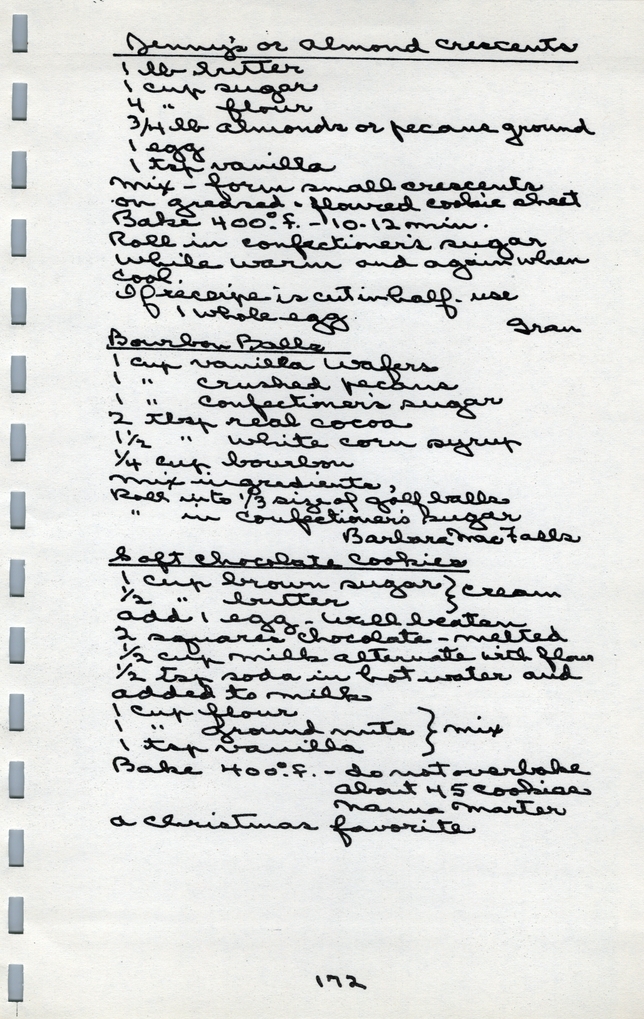 Jenny's or Almond Crescents
1 lb butter
1 cup sugar
4 " flour
3/4 lb almonds or pecans ground
1 egg
1 tsp vanilla
Mix - form small crescents
on greased & floured cookie sheet
Bake 400° f. - 10-12 min.
Roll in confectioner's sugar
while warm and again when
cool.
If receipe is cut in half - use
1 whole egg.
Gran
Bourbon Balls
1 cup vanilla wafers
1 " crushed pecans
1 " confectioner's sugar
2 tbsp real cocoa
1 1/2 " white corn syrup
1/4 cup bourbon
Mix ingredients,
Roll into 1/3 size of golf balls
" in confectioner's sugar
Barbara MacFalls
Soft Chocolate Cookies
1 cup brown sugar } cream
1/2 " butter
add 1 egg - well beaten
2 squares chocolate - melted
1/2 cup milk alternate with flour
1/2 tsp soda in hot water and
added to milk
1 cup flour
1 " ground nuts } mix
1 tsp vanilla
Bake 400° f. - do not overbake
about 45 cookies
Nanna Marter
a Christmas favorite
172